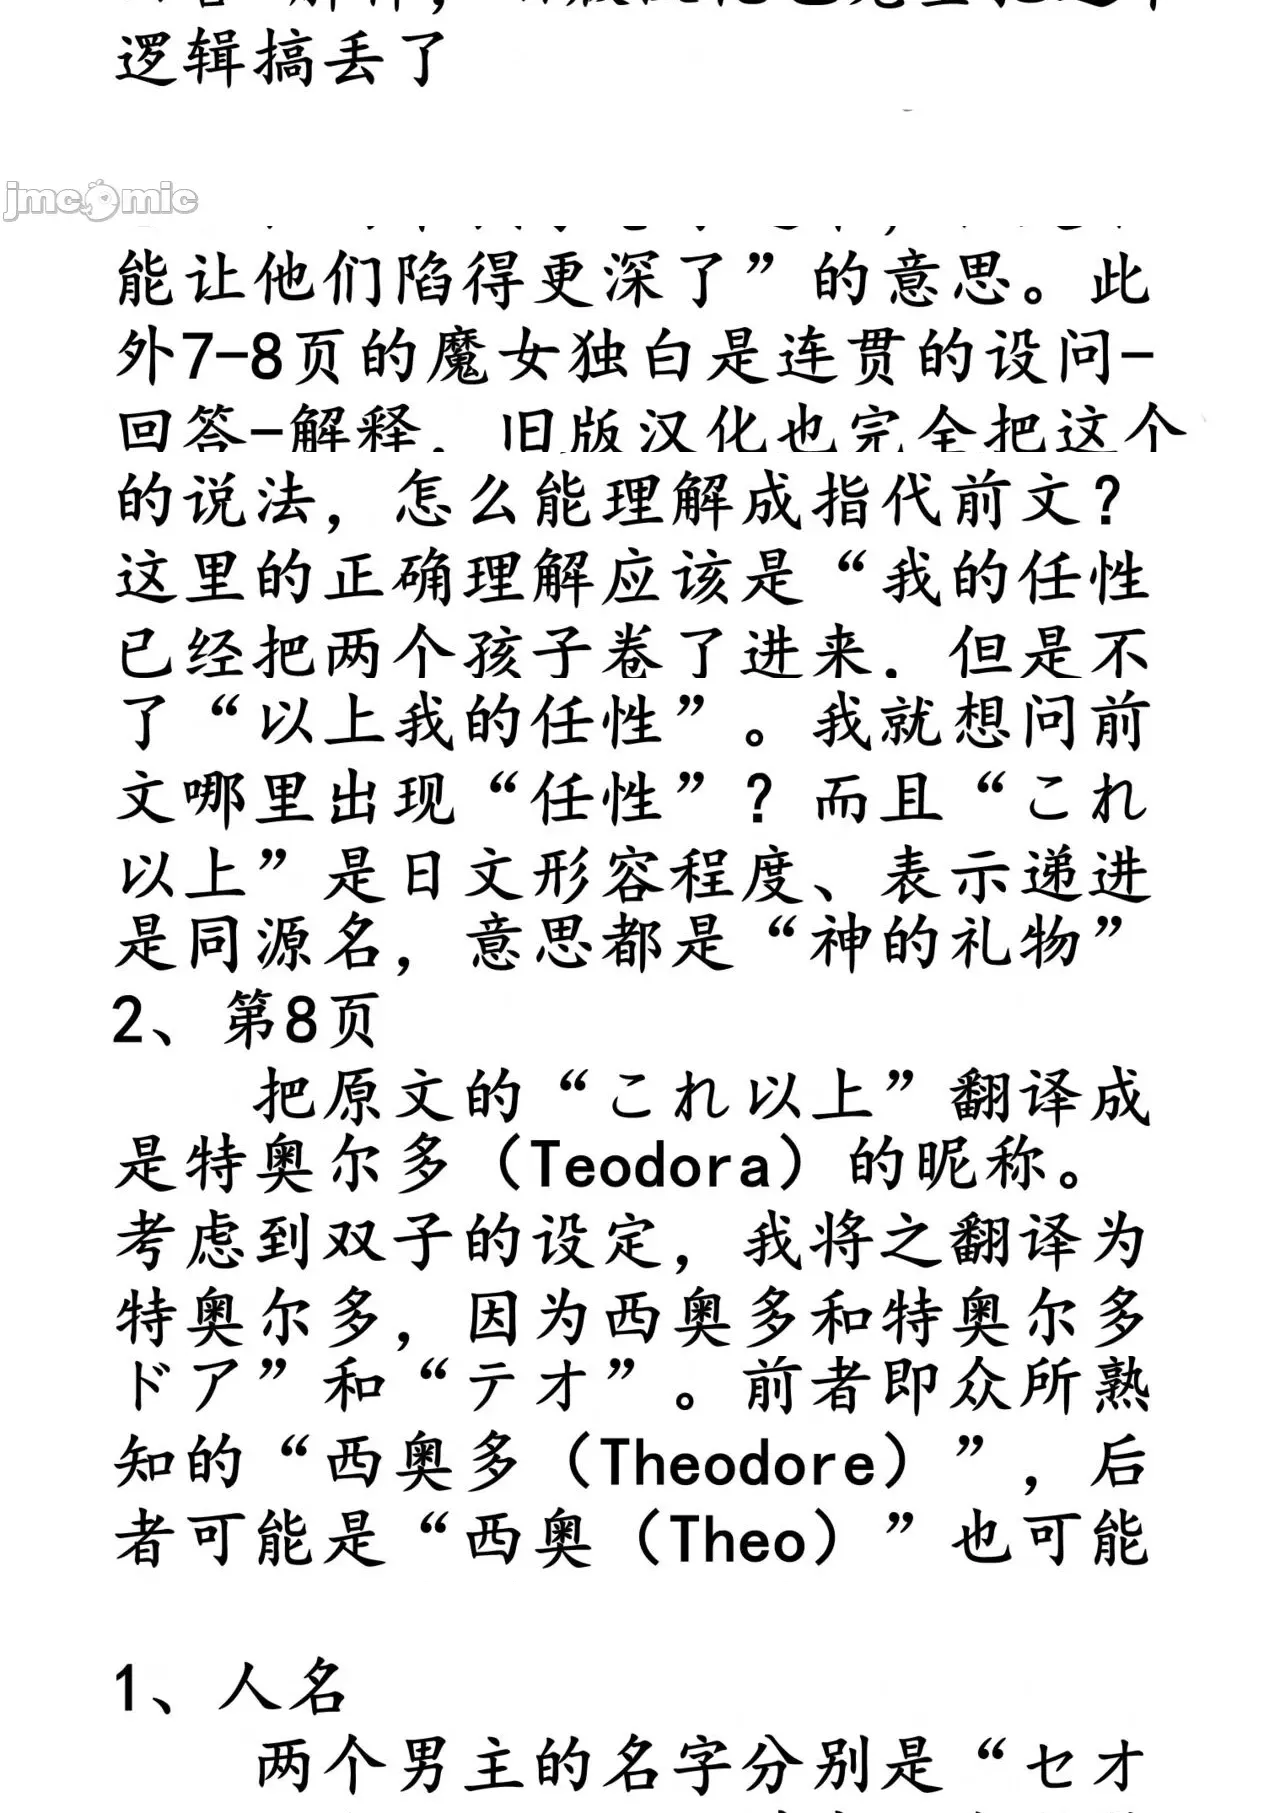 逻辑搞丢了
jmcomic
能让他们陷得更深了”的意思。此
外7-8页的魔女独白是连贯的设问-
回答-解释，旧版汉化也完全把这个
的说法，怎么能理解成指代前文？
这里的正确理解应该是“我的任性
已经把两个孩子卷了进来，但是不
了“以上我的任性”。我就想问前
文哪里出现“任性”？而且“これ
以上”是日文形容程度、表示递进
是同源名，意思都是“神的礼物”
2、第8页
把原文的“これ以上”翻译成
是特奥尔多（Teodora）的昵称。
考虑到双子的设定，我将之翻译为
特奥尔多，因为西奥多和特奥尔多
ドア”和“テオ”。前者即众所熟
知的“西奥多（Theodore）”，后
者可能是“西奥（Theo）”也可能
1、人名
两个男主的名字分别是“セオ